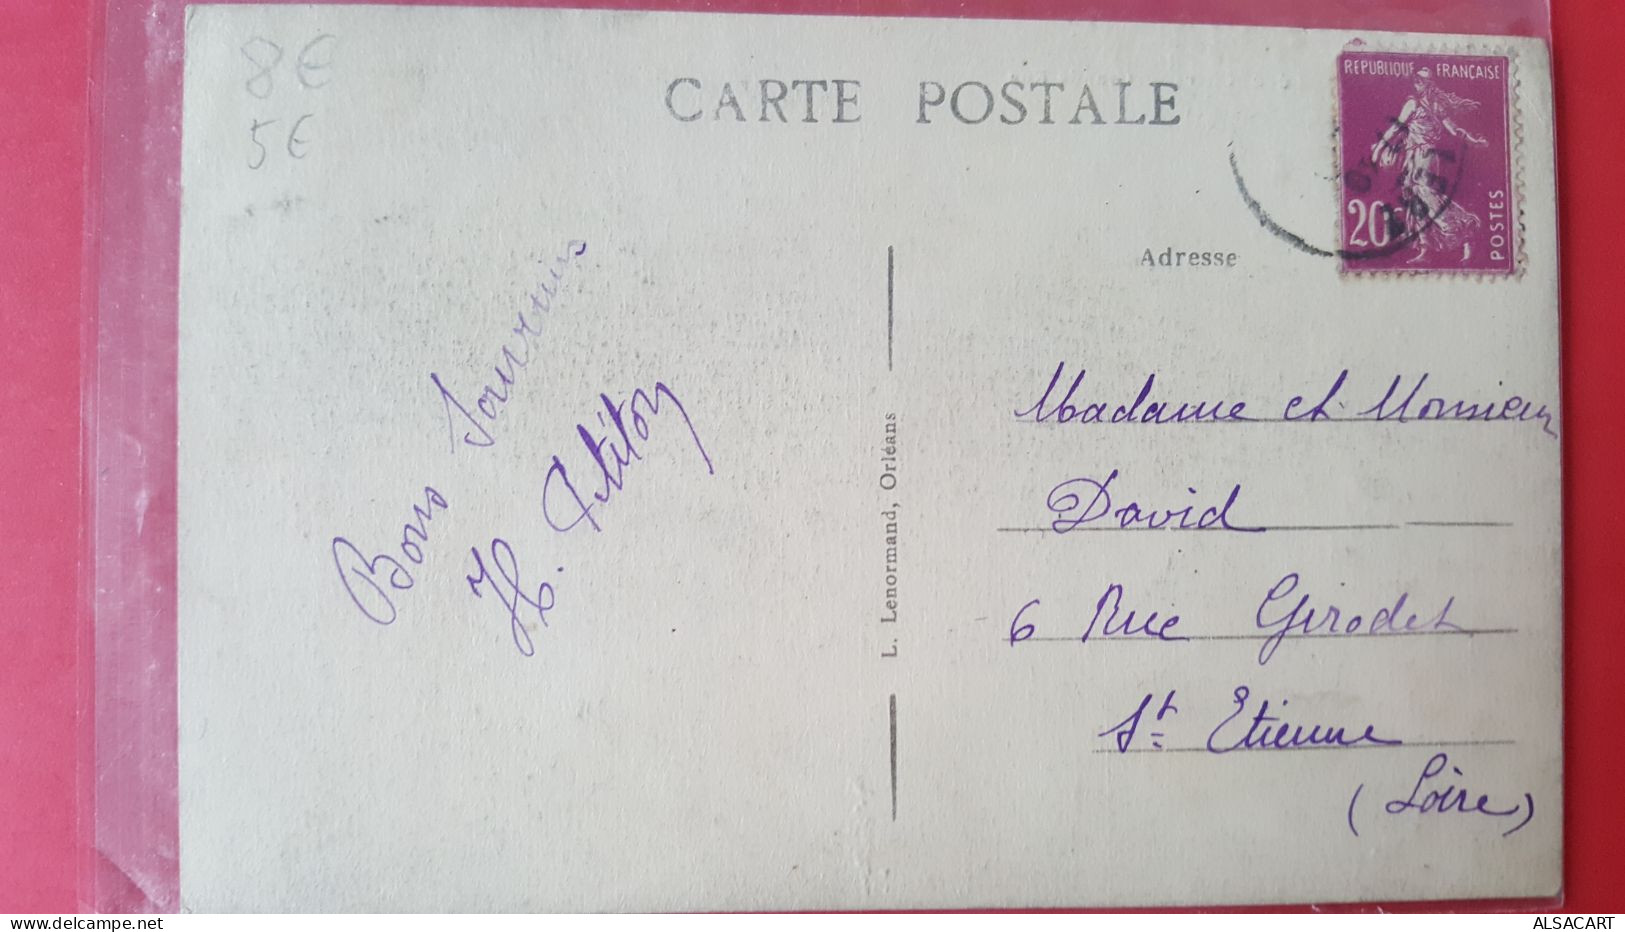 8€
5€
CARTE POSTALE
REPUBLIQUE FRANCAISE
20c
POSTES
Adresse
Bons Souvenirs
H. Petiton
L. Lenormand, Orléans
Madame et Monsieur
David
6 Rue Girodet
St Etienne
(Loire)
delcampe.net
ALSACART